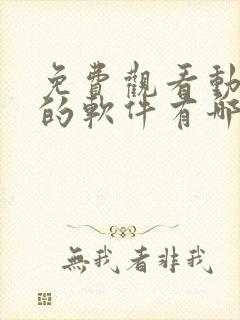 免費觀看動
的軟件有哪
無我者非我